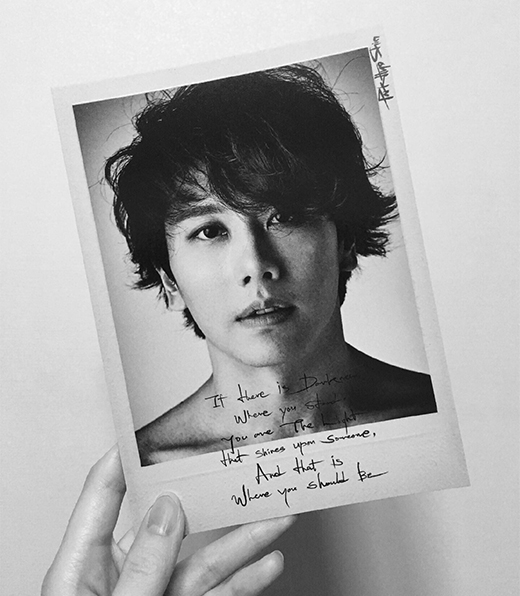 If there is Darkness
Where you stand
You are The Light
that shines upon someone,
And that is
Where you should Be